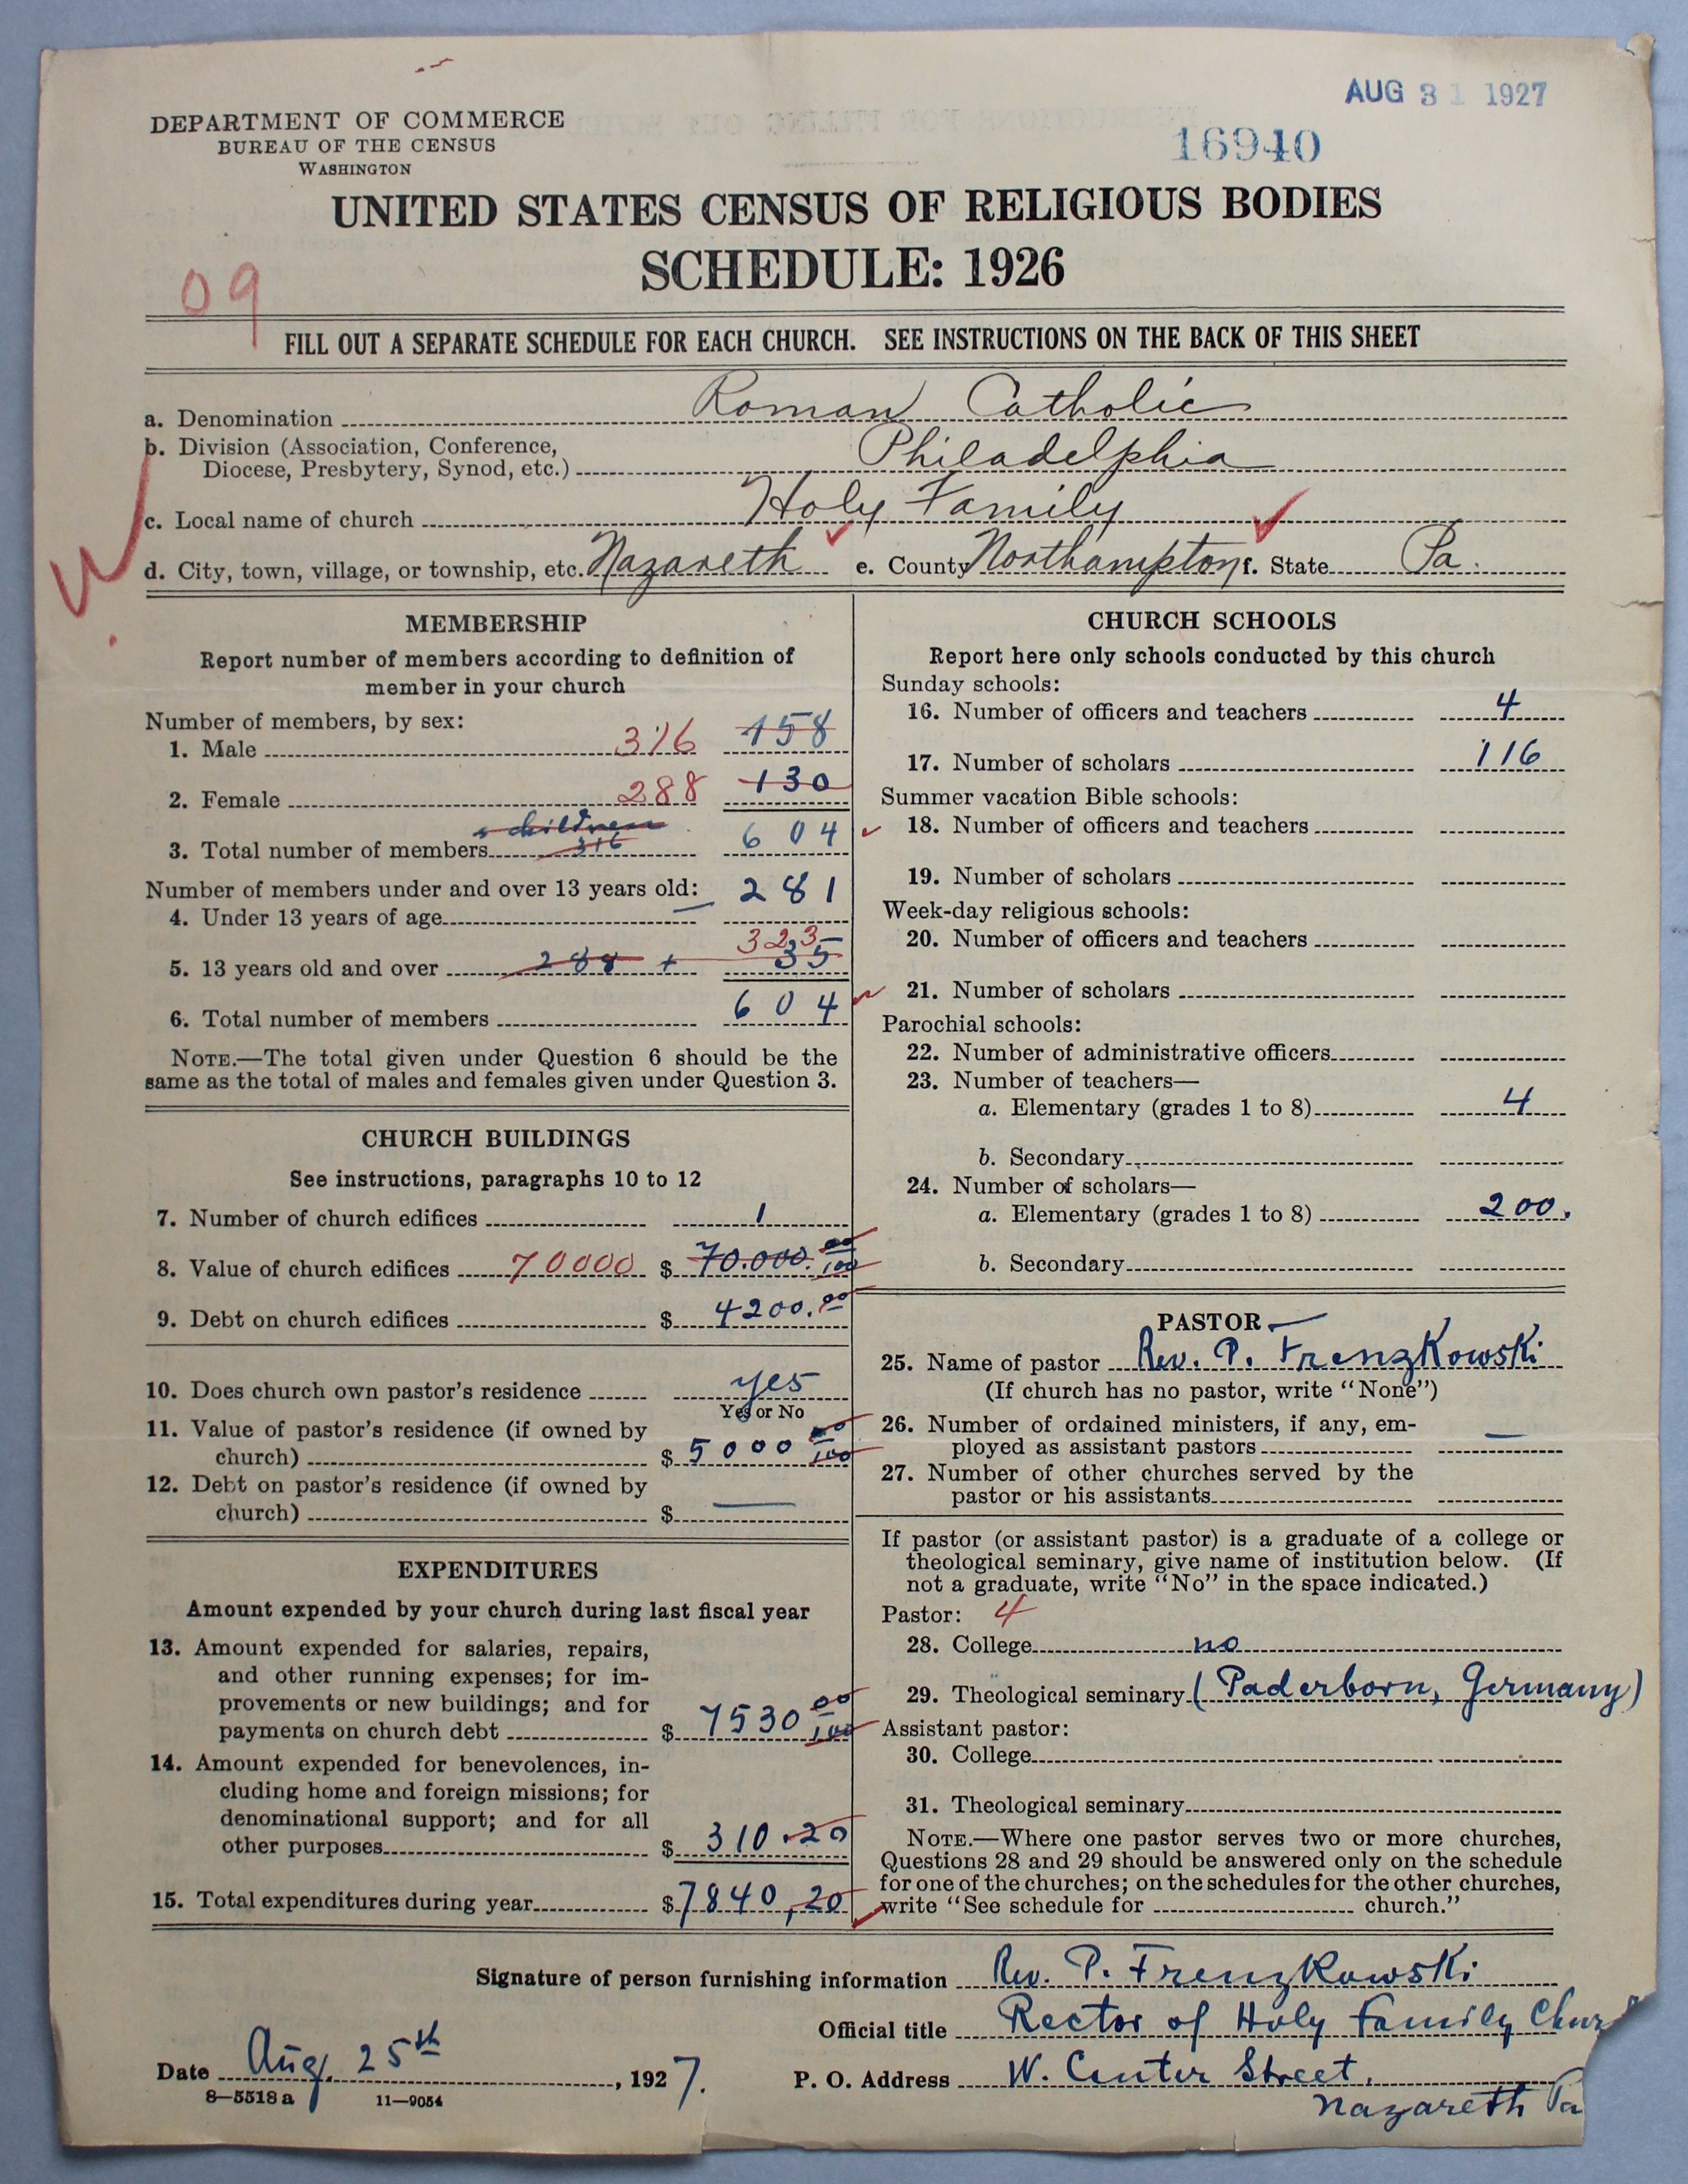 AUG 31 1927
16940
DEPARTMENT OF COMMERCE
BUREAU OF THE CENSUS
WASHINGTON
UNITED STATES CENSUS OF RELIGIOUS BODIES
SCHEDULE: 1926
09
FILL OUT A SEPARATE SCHEDULE FOR EACH CHURCH. SEE INSTRUCTIONS ON THE BACK OF THIS SHEET
a. Denomination Roman Catholic
b. Division (Association, Conference,
Diocese, Presbytery, Synod, etc.) Philadelphia
c. Local name of church Holy Family
d. City, town, village, or township, etc. Nazareth e. County Northampton f. State Pa.
MEMBERSHIP
Report number of members according to definition of
member in your church
Number of members, by sex:
1. Male 316 158
2. Female 288 130
children
3. Total number of members 316 604
Number of members under and over 13 years old: 281
4. Under 13 years of age
323
5. 13 years old and over 288 + 35
6. Total number of members 604
NOTE.—The total given under Question 6 should be the
same as the total of males and females given under Question 3.
CHURCH BUILDINGS
See instructions, paragraphs 10 to 12
7. Number of church edifices 1
8. Value of church edifices 70000 $ 70.000. 00/100
9. Debt on church edifices $ 4200.00
10. Does church own pastor's residence yes
Yes or No
11. Value of pastor's residence (if owned by
church) $ 5000 00/100
12. Debt on pastor's residence (if owned by
church) $ —
EXPENDITURES
Amount expended by your church during last fiscal year
13. Amount expended for salaries, repairs,
and other running expenses; for im-
provements or new buildings; and for
payments on church debt $ 7530 00/100
14. Amount expended for benevolences, in-
cluding home and foreign missions; for
denominational support; and for all
other purposes $ 310.20
15. Total expenditures during year $ 7840,20
CHURCH SCHOOLS
Report here only schools conducted by this church
Sunday schools:
16. Number of officers and teachers 4
17. Number of scholars 116
Summer vacation Bible schools:
18. Number of officers and teachers
19. Number of scholars
Week-day religious schools:
20. Number of officers and teachers
21. Number of scholars
Parochial schools:
22. Number of administrative officers
23. Number of teachers—
a. Elementary (grades 1 to 8) 4
b. Secondary
24. Number of scholars—
a. Elementary (grades 1 to 8) 200.
b. Secondary
PASTOR
25. Name of pastor Rev. P. Frenzkowski
(If church has no pastor, write "None")
26. Number of ordained ministers, if any, em-
ployed as assistant pastors —
27. Number of other churches served by the
pastor or his assistants
If pastor (or assistant pastor) is a graduate of a college or
theological seminary, give name of institution below. (If
not a graduate, write "No" in the space indicated.)
Pastor: 4
28. College no
29. Theological seminary (Paderborn, Germany)
Assistant pastor:
30. College
31. Theological seminary
NOTE.—Where one pastor serves two or more churches,
Questions 28 and 29 should be answered only on the schedule
for one of the churches; on the schedules for the other churches,
write "See schedule for church."
Signature of person furnishing information Rev. P. Frenzkowski
Official title Rector of Holy Family Chur
Date Aug. 25th, 1927. P. O. Address W. Center Street,
8—5518 a 11—9054
Nazareth Pa